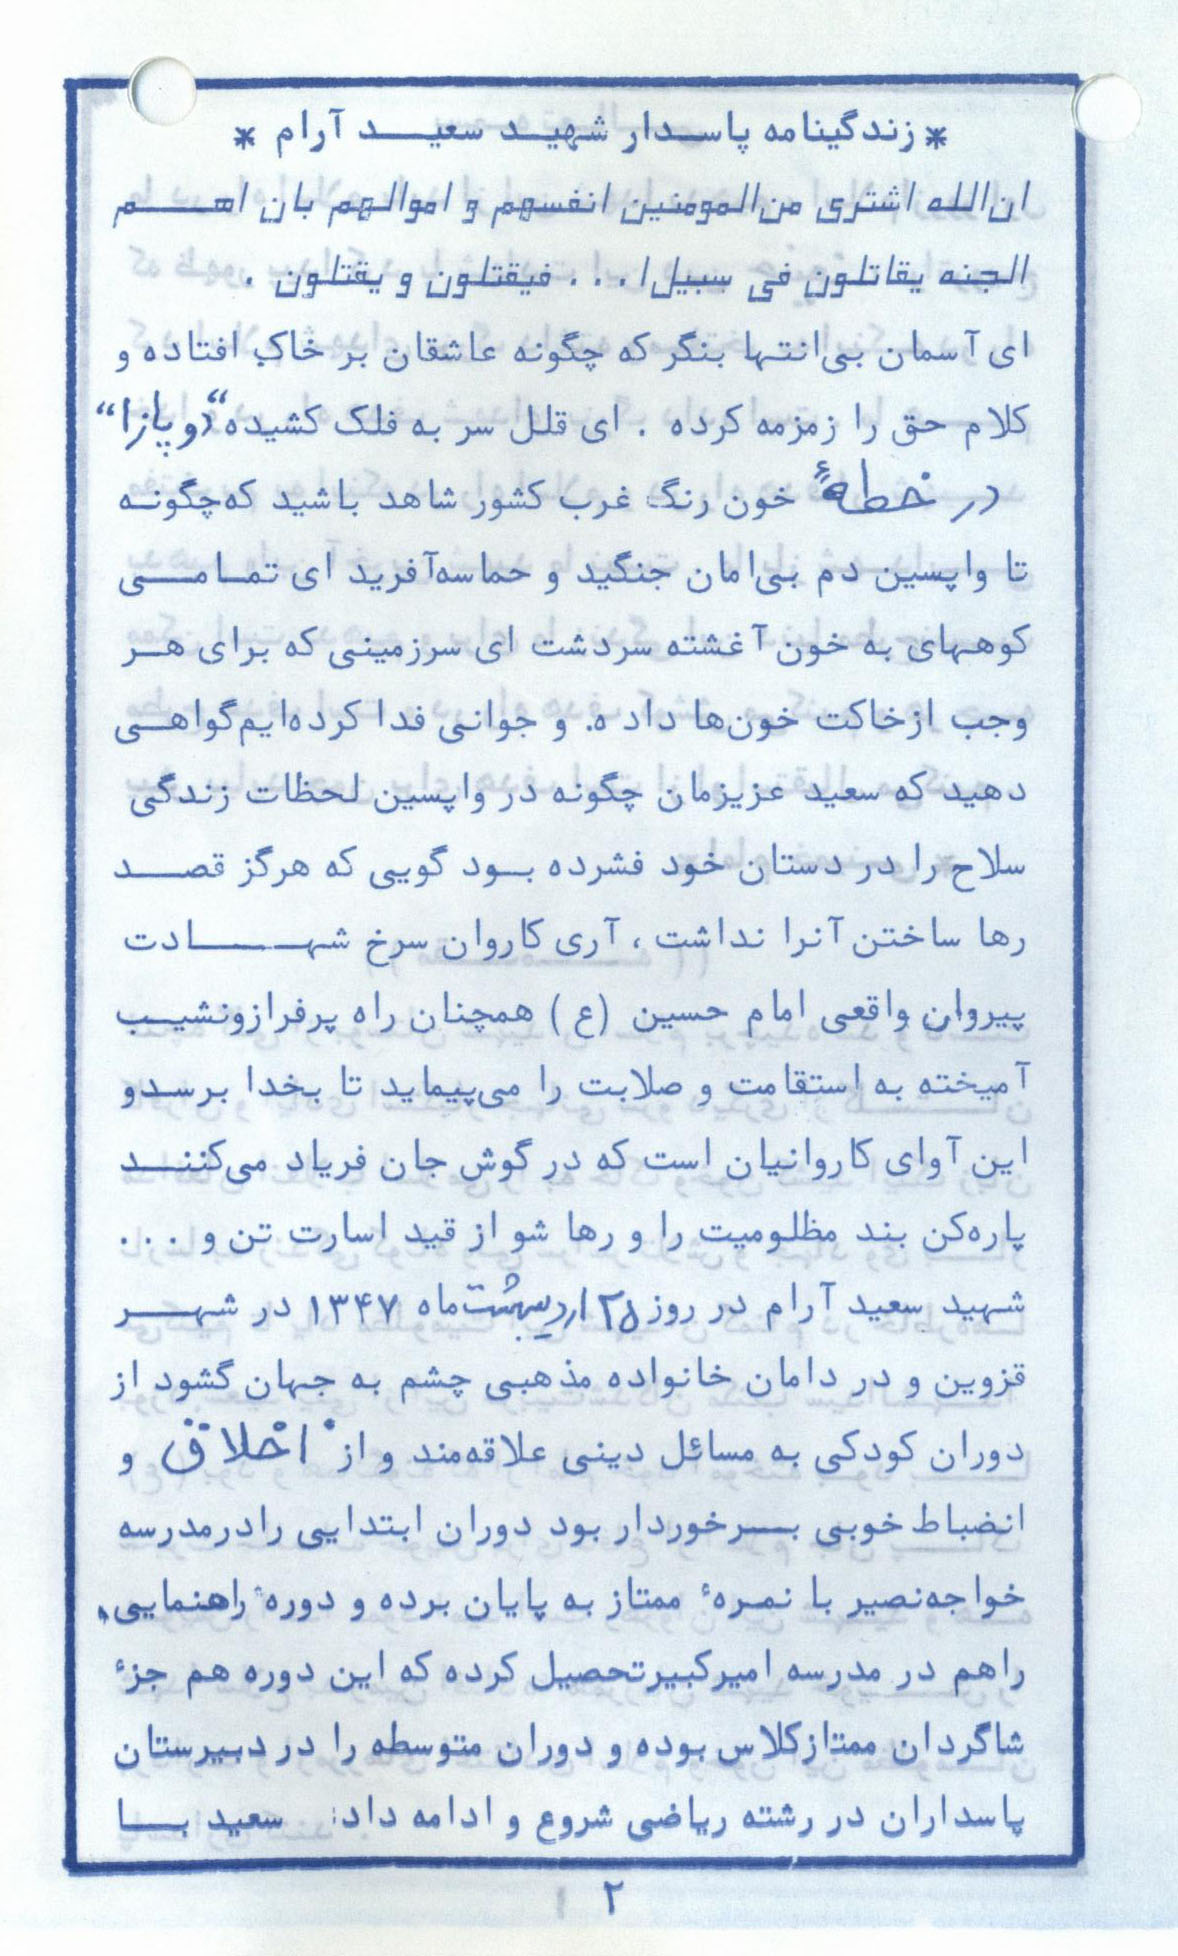 * زندگینامه پاسدار شهید سعید آرام *
ان‌الله اشتری من‌المومنین انفسهم و اموالهم بان لهم
الجنه یقاتلون فی سبیل‌ا... فیقتلون و یقتلون .
ای آسمان بی‌انتها بنگر که چگونه عاشقان بر خاک افتاده و
کلام حق را زمزمه کرده . ای قلل سر به فلک کشیده "دوپازا"
در خطهٔ خون رنگ غرب کشور شاهد باشید که چگونه
تا واپسین دم بی‌امان جنگید و حماسه‌آفرید ای تمامی
کوههای به خون آغشته سردشت ای سرزمینی که برای هر
وجب ازخاکت خون‌ها داده. و جوانی فدا کرده‌ایم گواهی
دهید که سعید عزیزمان چگونه در واپسین لحظات زندگی
سلاح را در دستان خود فشرده بود گویی که هرگز قصد
رها ساختن آنرا نداشت ، آری کاروان سرخ شهادت
پیروان واقعی امام حسین (ع) همچنان راه پرفرازونشیب
آمیخته به استقامت و صلابت را می‌پیماید تا بخدا برسدو
این آوای کاروانیان است که در گوش جان فریاد می‌کنند
پاره‌کن بند مظلومیت را و رها شو از قید اسارت تن و ...
شهید سعید آرام در روز ۲۵ اردیبهشت‌ماه ۱۳۴۷ در شهر
قزوین و در دامان خانواده مذهبی چشم به جهان گشود از
دوران کودکی به مسائل دینی علاقه‌مند و از اخلاق و
انضباط خوبی برخوردار بود دوران ابتدایی رادرمدرسه
خواجه‌نصیر با نمرهٔ ممتاز به پایان برده و دورهٔ راهنمایی
راهم در مدرسه امیرکبیرتحصیل کرده که این دوره هم جزءٔ
شاگردان ممتازکلاس بوده و دوران متوسطه را در دبیرستان
پاسداران در رشته ریاضی شروع و ادامه داد: سعید با
۲